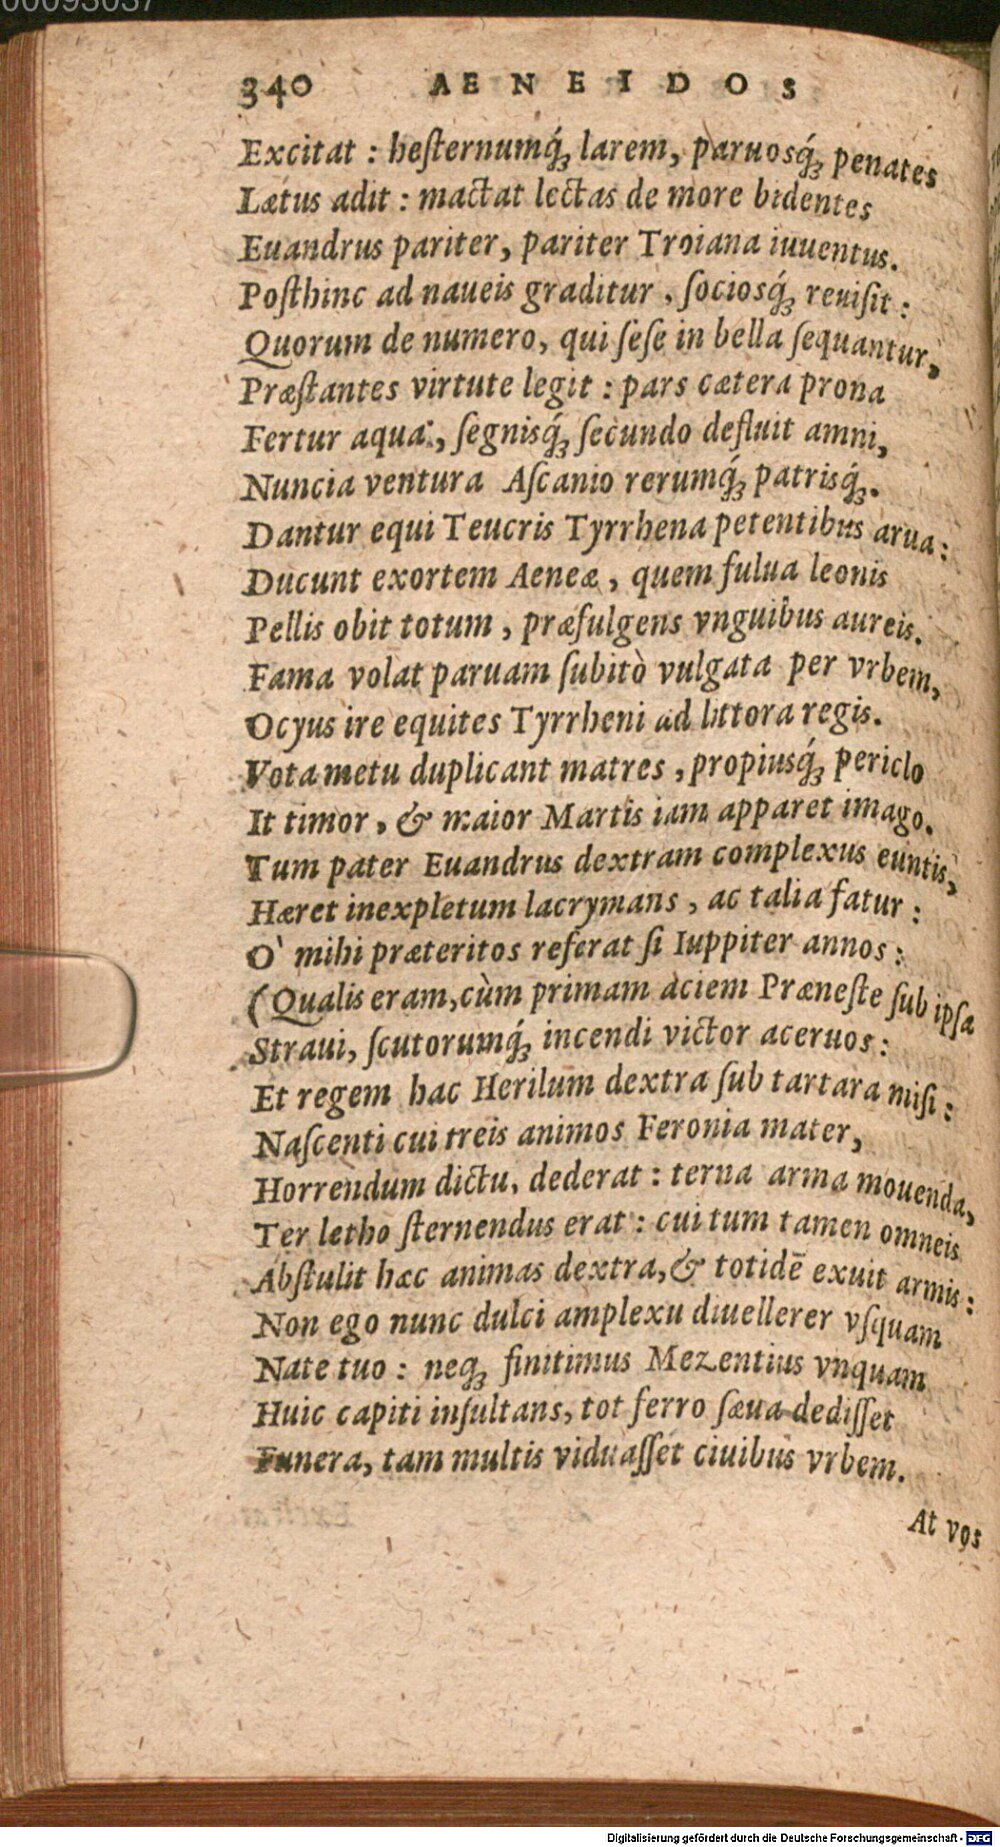 00093037
340 AENEIDOS
Excitat : heſternumq́ꝫ larem, paruosq́ꝫ penates
Lætus adit : mactat lectas de more bidentes
Euandrus pariter, pariter Troiana iuuentus.
Poſthinc ad naueis graditur , ſociosq́ꝫ reuiſit :
Quorum de numero, qui ſeſe in bella ſequantur,
Præſtantes virtute legit : pars cætera prona
Fertur aqua:, ſegnisq́ꝫ ſecundo defluit amni,
Nuncia ventura Aſcanio rerumq́ꝫ patrisq́ꝫ.
Dantur equi Teucris Tyrrhena petentibus arua :
Ducunt exortem Aeneæ , quem fulua leonis
Pellis obit totum , præfulgens vnguibus aureis.
Fama volat paruam ſubitò vulgata per vrbem,
Ocyus ire equites Tyrrheni ad littora regis.
Vota metu duplicant matres , propiusq́ꝫ periclo
It timor , & maior Martis iam apparet imago.
Tum pater Euandrus dextram complexus euntis,
Hæret inexpletum lacrymans , ac talia fatur :
O` mihi præteritos referat ſi Iuppiter annos :
(Qualis eram, cùm primam aciem Præneſte ſub ipſa
Straui, ſcutorumq́ꝫ incendi victor aceruos :
Et regem hac Herilum dextra ſub tartara miſi :
Naſcenti cui treis animos Feronia mater,
Horrendum dictu, dederat : terna arma mouenda,
Ter letho ſternendus erat : cui tum tamen omneis
Abſtulit hæc animas dextra, & totidē exuit armis :
Non ego nunc dulci amplexu diuellerer vſquam
Nate tuo : neqꝫ finitimus Mezentius vnquam
Huic capiti inſultans, tot ferro ſæua dediſſet
Funera, tam multis viduaſſet ciuibus vrbem.
At vos
Digitalisierung gefördert durch die Deutsche Forschungsgemeinschaft - DFG